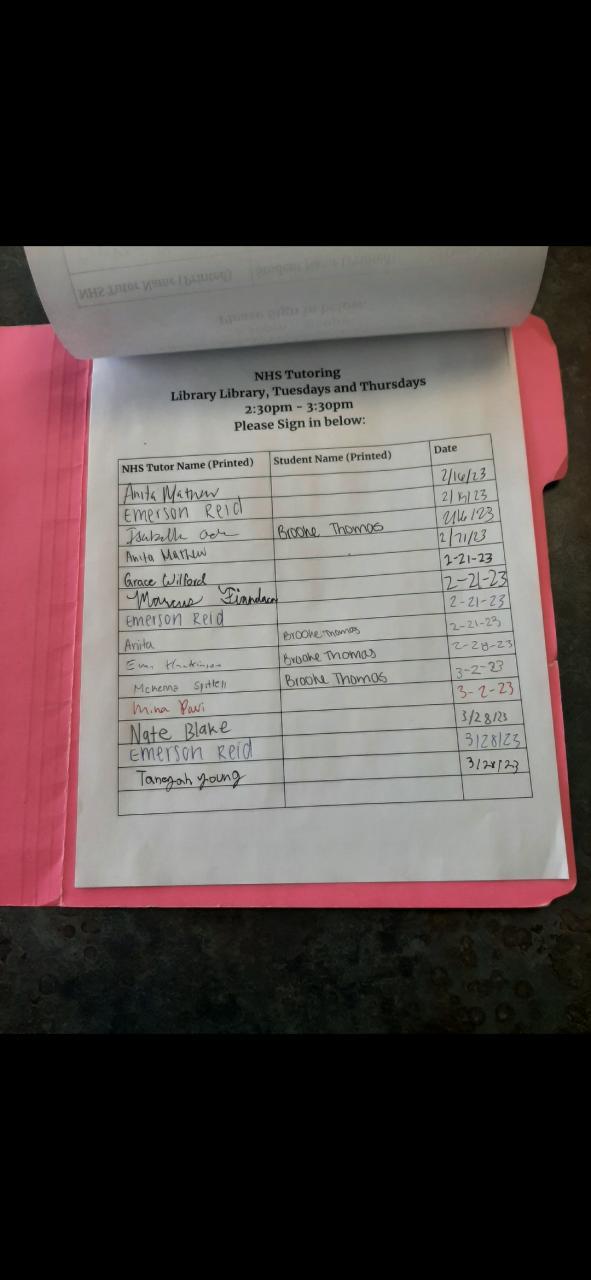 NHS Tutor Name (Printed) Student Name (Printed)
Please Sign in below:
NHS Tutoring
Library Library, Tuesdays and Thursdays
2:30pm - 3:30pm
Please Sign in below:
NHS Tutor Name (Printed) Student Name (Printed) Date
Anita Mathew 2/16/23
Emerson Reid 2/16/23
Isabella Brooke Thomas 2/16/23
Anita Mathew
Grace Wilford 2-21-23
Marcus 2-21-23
Emerson Reid 2-21-23
Anita Brooke Thomas 2-21-23
Evan Brooke Thomas 2-28-23
Mckenna Brooke Thomas 3-2-23
Mina 3-2-23
Nate Blake 3/28/23
Emerson Reid 3/28/23
Young 3/28/23